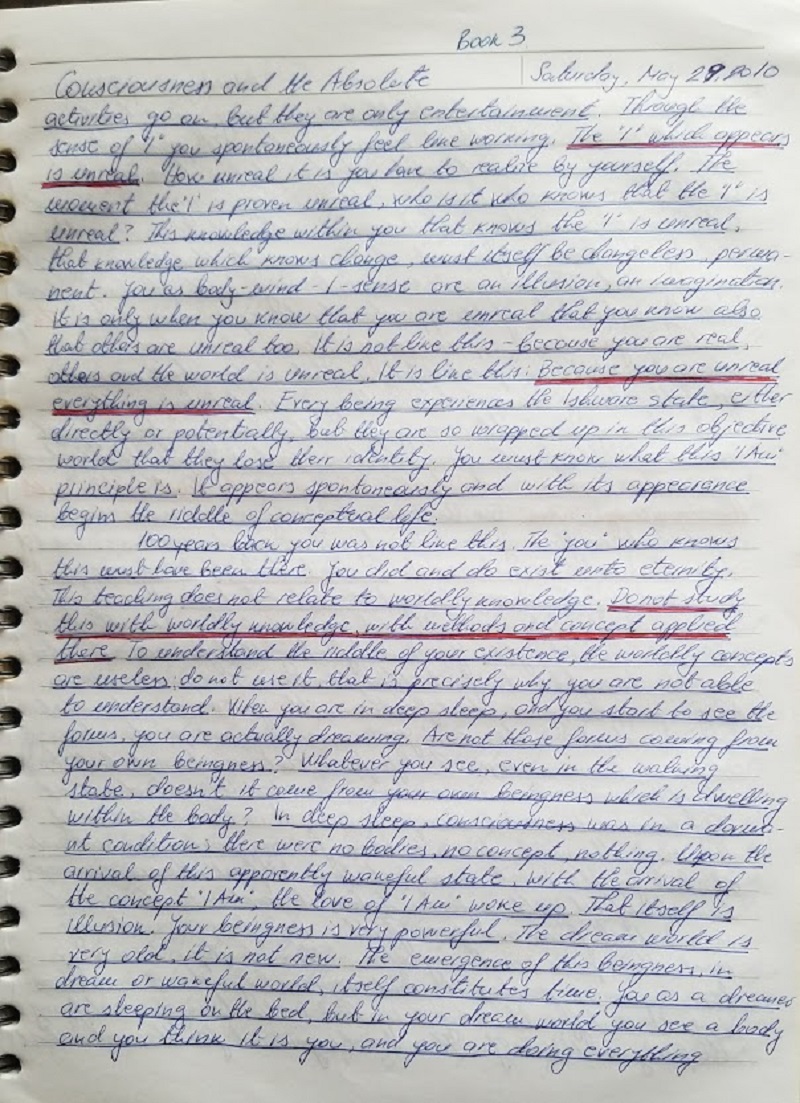 Book 3
Consciousness and the Absolute
Saturday, May 29, 2010
activities go on, but they are only entertainment. Through the
sense of 'I' you spontaneously feel like working. The 'I' which appears
is unreal. How unreal it is you have to realize by yourself. The
moment the 'I' is proven unreal, who is it who knows that the 'I' is
unreal? This knowledge within you that knows the 'I' is unreal,
that knowledge which knows change, must itself be changeless, perma-
nent. You as body-mind-I-sense are an illusion, an imagination.
It is only when you know that you are unreal that you know also
that others are unreal too. It is not like this - because you are real,
others and the world is unreal. It is like this: Because you are unreal
everything is unreal. Every being experiences the Ishwara state, either
directly or potentially, but they are so wrapped up in this objective
world that they lose their identity. You must know what this 'I Am'
principle is. It appears spontaneously and with its appearance
begins the riddle of conceptual life.
100 years back you was not like this. The 'you' who knows
this must have been there. You did and do exist unto eternity.
This teaching does not relate to worldly knowledge. Do not study
this with worldly knowledge, with methods and concept applied
there. To understand the riddle of your existence, the worldly concepts
are useless; do not use it, that is precisely why you are not able
to understand. When you are in deep sleep, and you start to see the
forms, you are actually dreaming. Are not those forms coming from
your own beingness? Whatever you see, even in the waking
state, doesn't it come from your own beingness which is dwelling
within the body? In deep sleep, consciousness was in a dorma-
nt condition; there were no bodies, no concept, nothing. Upon the
arrival of this apparently wakeful state, with the arrival of
the concept 'I Am', the love of 'I Am' woke up. That itself is
illusion. Your beingness is very powerful. The dream world is
very old, it is not new. The emergence of this beingness, in
dream or wakeful world, itself constitutes time. You as a dreamer
are sleeping on the bed, but in your dream world you see a body
and you think it is you, and you are doing everything